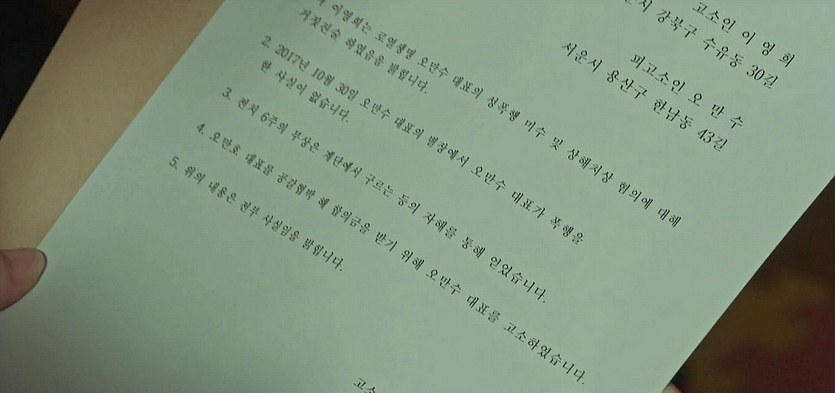 고소인 이 영 희
서운시 강북구 수유동 30길
피고소인 오 만 수
서운시 용산구 한남동 43길
이영희는 로열생명 오만수 대표의 성폭행 미수 및 상해치상 혐의에 대해
거짓진술 하였음을 밝힙니다.
2. 2017년 10월 30일 오만수 대표의 별장에서 오만수 대표가 폭행을
한 사실이 없습니다.
3. 전치 6주의 부상은 계단에서 구르는 등의 자해를 통해 얻었습니다.
4. 오만호 대표를 공갈협박 해 합의금을 받기 위해 오만수 대표를 고소하였습니다.
5. 위의 내용은 전부 사실임을 밝힙니다.
고소